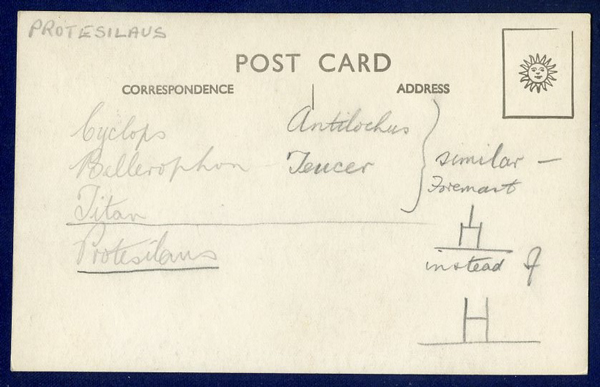 PROTESILAUS
POST CARD
CORRESPONDENCE
ADDRESS
Cyclops
Bellerophon
Titan
Protesilaus
Antilochus
Teucer
similar —
Foremast
H
instead of
H